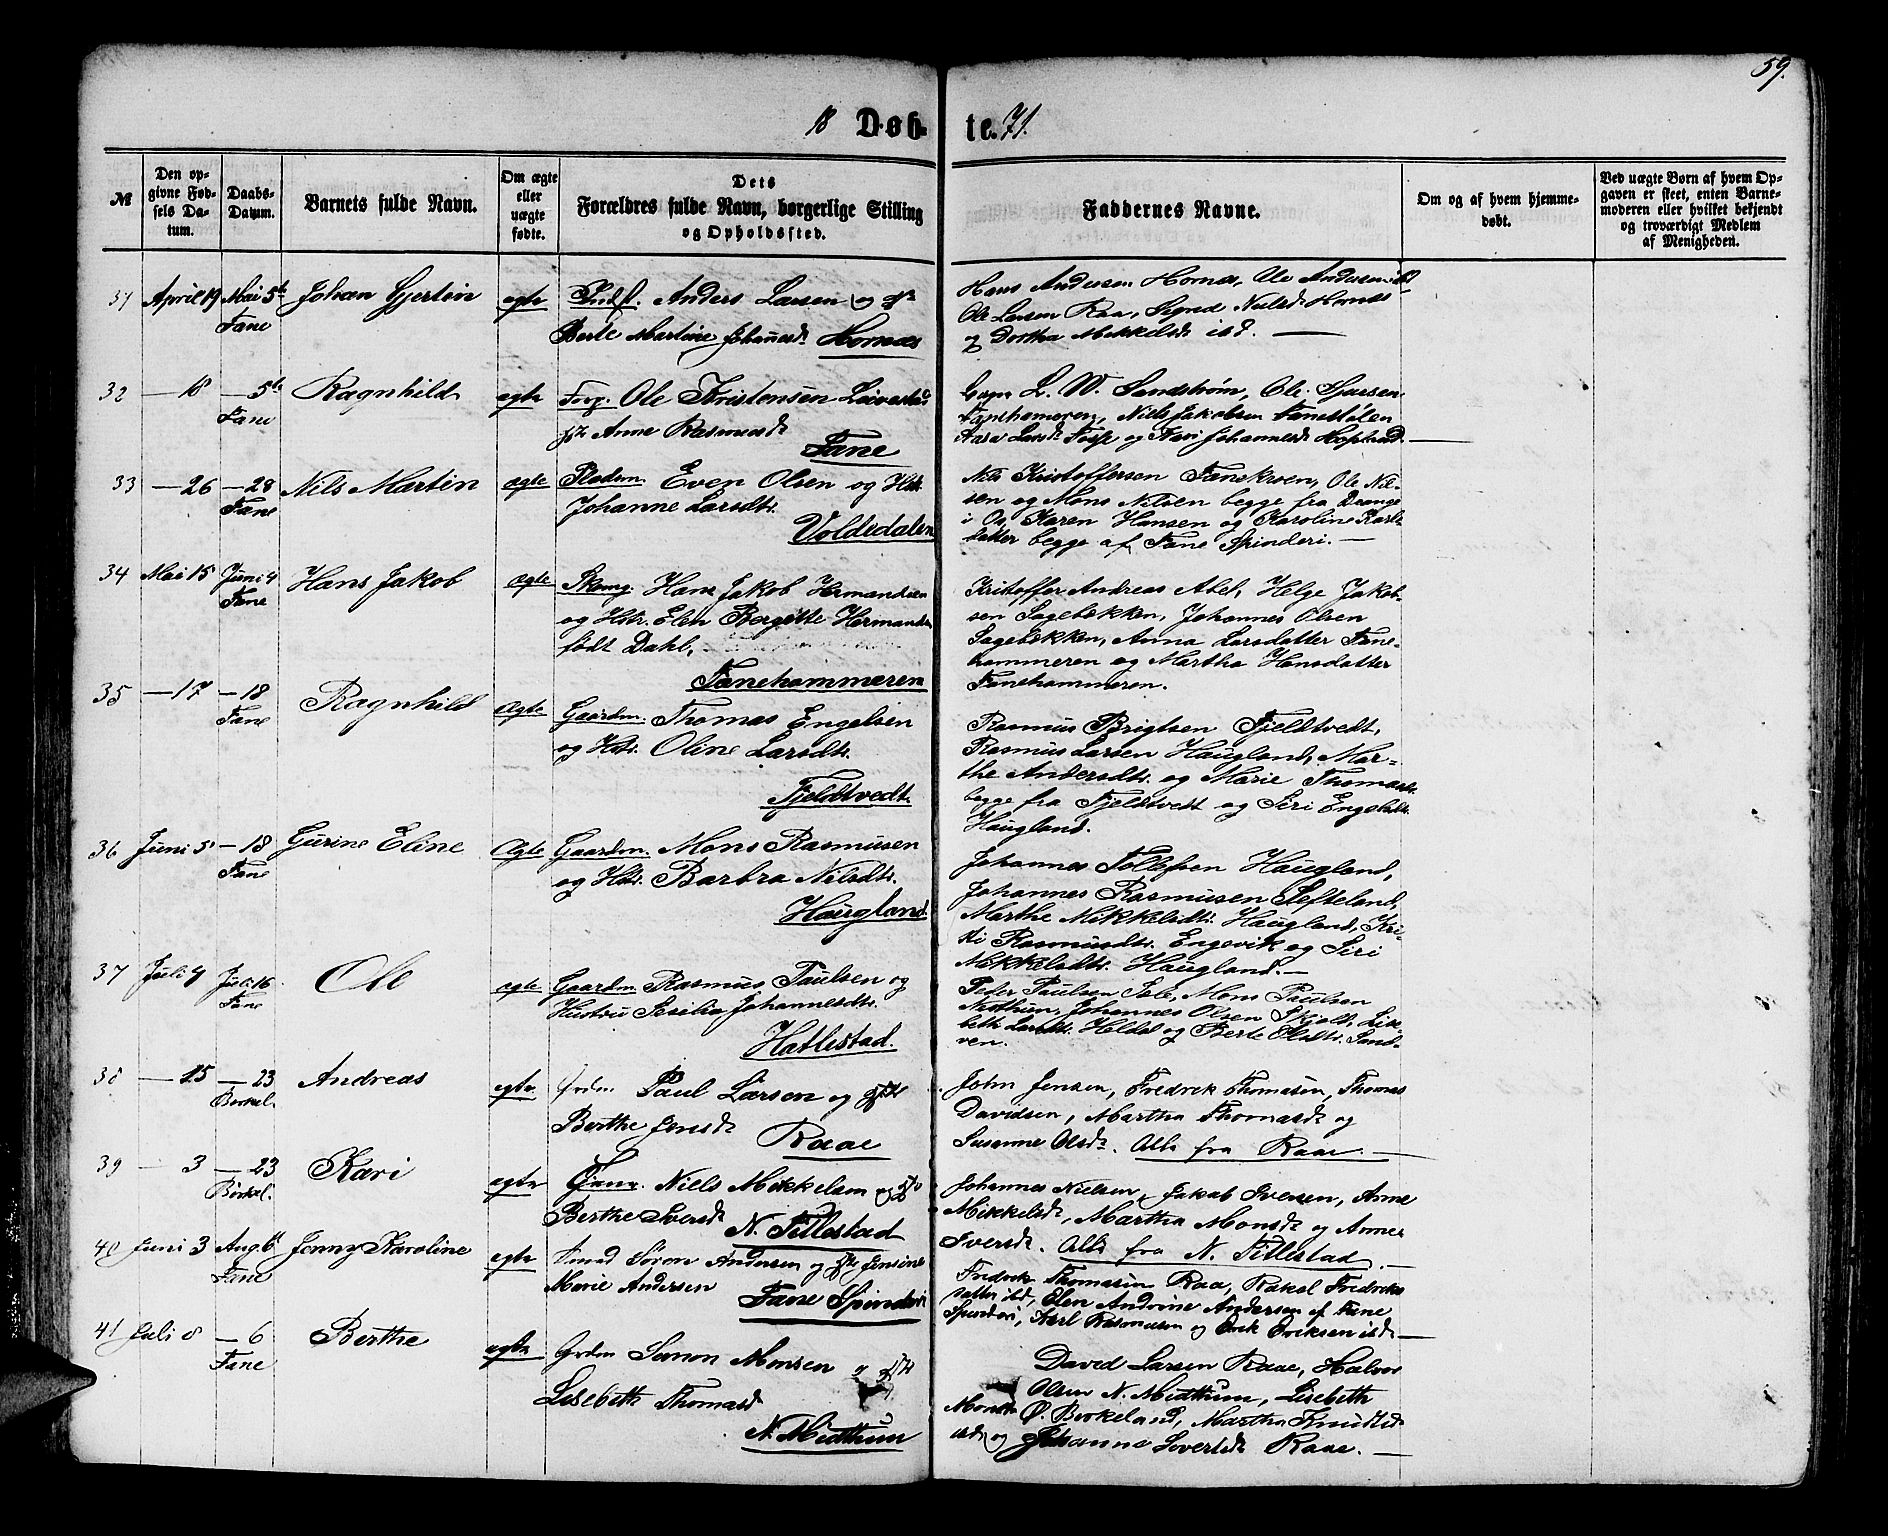 59.
18 Døb- te. 71.
№
Den op-
givne Fød-
sels Da-
tum.
Daabs-
Datum.
Barnets fulde Navn.
Om ægte
eller
uægte
fødte.
Dets
Forældres fulde Navn, borgerlige Stilling
og Opholdssted.
Faddernes Navne.
Om og af hvem hjemme-
døbt.
Ved uægte Børn af hvem Op-
gaven er skeet, enten Barne-
moderen eller hvilket bekjendt
og troværdigt Medlem
af Menigheden.
31 April 19 Mai 5te Johan Gjertin egte Indst. Anders Larsen og
Fane
Berte Martine Johannesdr Hornæs
Hans Andersen Hornæs, Ole Andersen ibd
Ole Larsen Raa, Sigrid Nielsd Hornæs
og Dorthea Mikkelsdr ibd.
32 — 18 — 5te Ragnhild egte Forp. Ole Kristensen
Fane
Anne Rasmusdr
Fane
L. W. Sandstrøm, Ole Sjursen
Fanehameren, Niels Jakobsen Fanestølen
Larsdr og Kari Johannesdr Hopstad.
33 — 26 — 28 Nils Martin ægte Pladsm. Even Olsen og Hstr.
Fane
Johanne Larsdtr.
Voldedalen
Nils Kristoffersen Fanekroen, Ole Nil-
sen og Mons Nilsen begge fra Drange
i Os, Karen Hansen og Karoline Karls-
datter begge af Fane Spinderi.
34 Mai 15 Juni 4 Hans Jakob ægte Skomg. Hans Jakob Hermandsen
Fane
og Hstr. Elen Bergitte Hermandsen
født Dahl,
Fanehammeren
Kristoffer Andreas Abel, Helge Jakob-
sen Sagebækken, Johannes Olsen
Sagebækken, Anna Larsdatter Fane-
hammeren og Martha Hansdatter
Fanehammeren.
35 — 17 — 18 Ragnhild Ægte Gaardm. Thomas Engelsen
Fane
og Hstr. Oline Larsdtr.
Fjeldtvedt.
Rasmus Brigtsen Fjeldtvedt,
Rasmus Larsen Haugland, Mar-
the Andersdtr. og Marie Thomasdtr.
begge fra Fjeldtvedt og Siri Engelsdtr.
Haugland.
36 Juni 5 — 18 Gurine Eline Ægte Gaardm. Mons Rasmusen
Fane
og Hstr. Barbra Nilsdtr.
Haugland.
Johannes Tollefsen Haugland,
Johannes Rasmusen Søfteland,
Marthe Mikkelsdtr. Haugland, Kri-
sti Rasmusdtr. Engevik og Siri
Mikkelsdtr. Haugland.
37 Juli 4 Juli 16 Ole egte Gaardm Rasmus Paulsen og
Fane
Hustru Sesilia Johannesdtr.
Hatlestad.
Peder Paulsen Sole, Mons Paulsen
Midthun, Johannes Olsen Skjold, Lisa-
beth Larsdtr. Heldal og Berte Olsdtr. Sand-
ven.
38 — 15 — 23 Andreas egte Grdm Paul Larsen og
Birkel.
Berthe Jensdr
Raae
John Jensen, Fredrik Thomasen, Thomas
Davidsen, Martha Thomasdr og
Susanne Olsdr. Alle fra Raae.
39 — 3 — 23 Kari egte Niels Mikkelsen og
Birkel.
Berthe Iversdr
N. Titlestad
Johannes Nielsen, Jakob Iversen, Anne
Mikkelsdr, Martha Monsdr og Anne
Iversdr. Alle fra N. Titlestad
40 Juni 3 Aug. 6 Jenny Karoline egte Søren Andersen og Jensine
Fane
Marie Andersen
Fane Spinderi
Fredrik Thomasen Raa, Rakel Fredriks
datter ibd, Elen Andrine Andersen af Fane
Spinderi, Karl Rasmusen og Erik Eriksen ibd
41 Juli 8 — 6 Berthe egte Grdm Simon Monsen og
Fane
Lisebeth Thomasd
N. Midthun
David Larsen Raae, Halvor
Olsen N. Midthun, Lisebeth
Monsdr Ø. Birkeland, Martha Knudsd
ibd og Johanne Sivertsdr Raae.